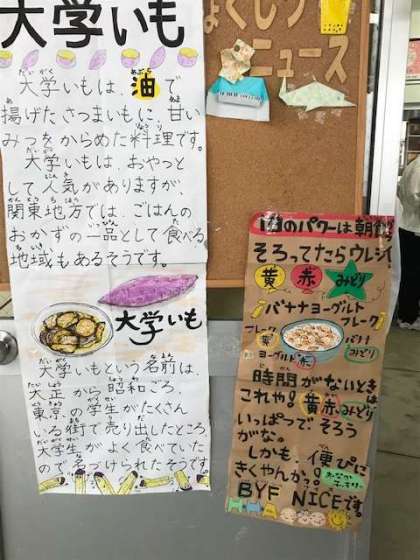 大学いも
大学いもは、油で
揚げたさつまいもに、甘い
みつをからめた料理です。
大学いもは、おやつと
して人気がありますが、
関東地方では、ごはんの
おかずの一品として食べる
地域もあるそうです。
大学いも
大学いもという名前は、
大正から昭和ごろ、
東京の学生がたくさん
いる街で売り出したところ
大学生がよく食べていた
ので名づけられたそうです。
ょくしつ
ニュース
のパワーは朝
そろってたらウレシイ
黄 赤 みどり
バナナヨーグルト
フレーク
フレーク
黄
バナナ
みどり
ヨーグルト
赤
時間がないとき
これや!黄赤みどりは
いっぱつでそろう
がな。
しかも、便ぴに
きくやんか?!
おなか
スッキリー
BYF NICEです。